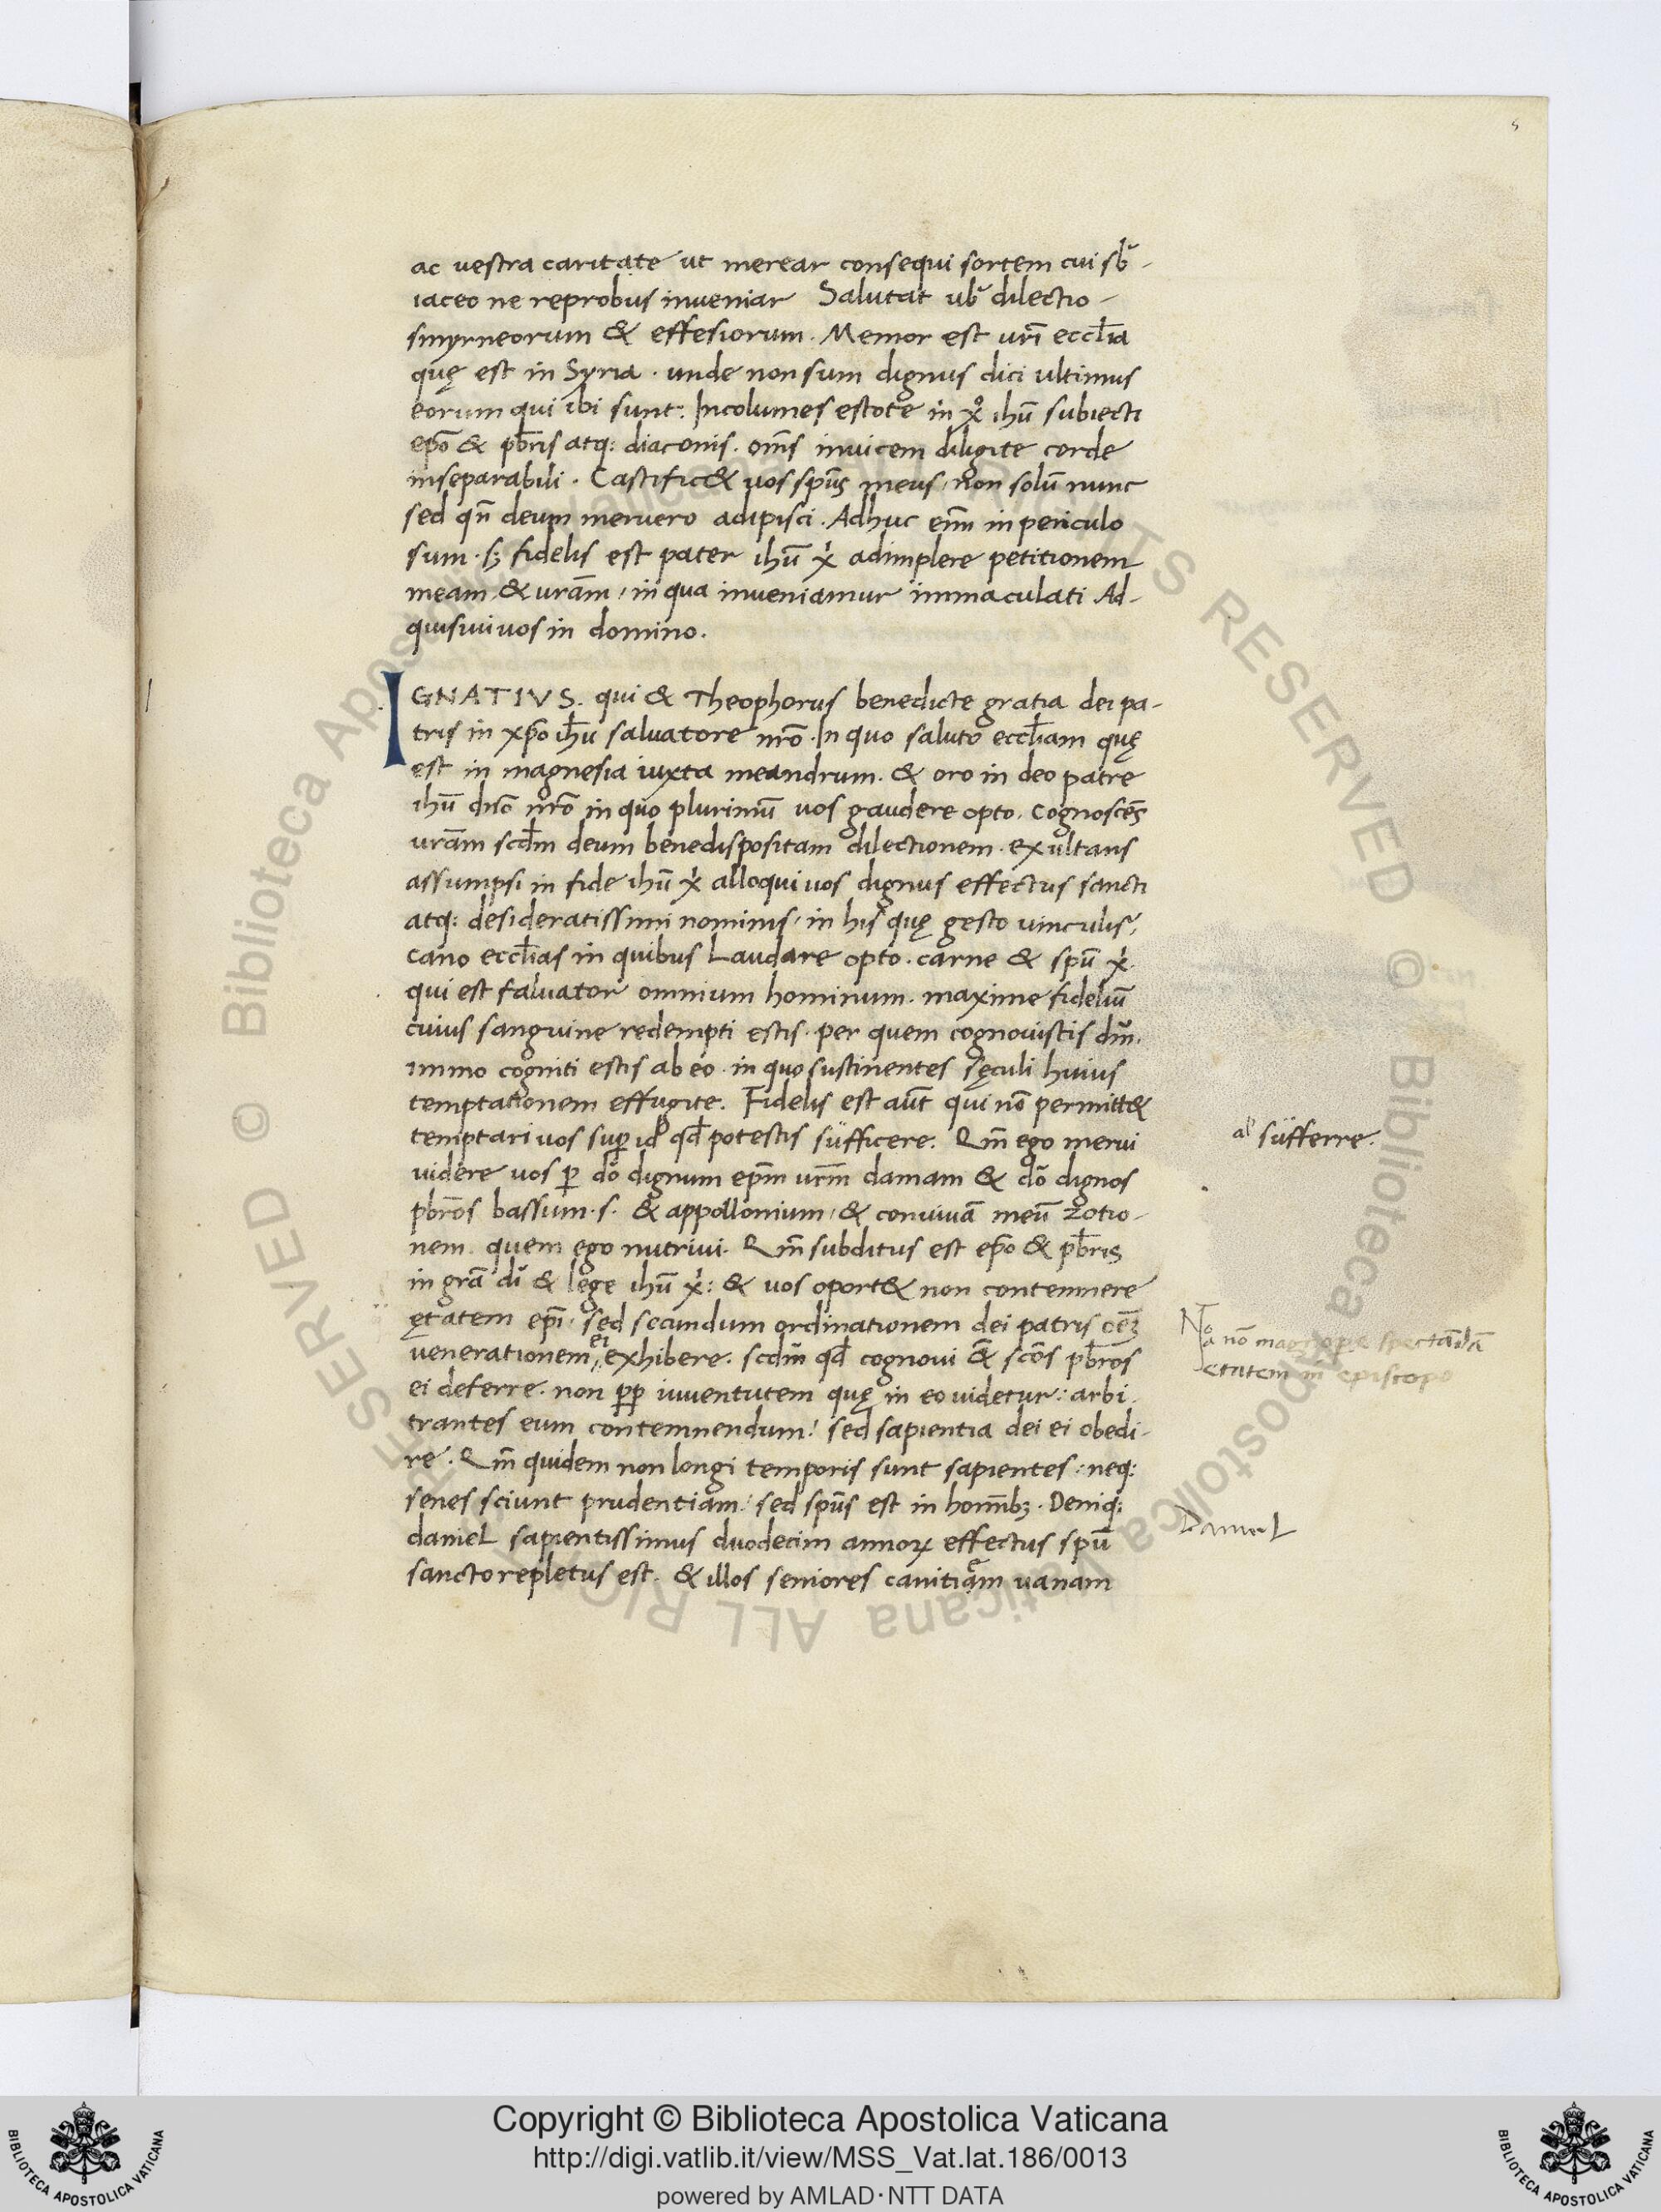 5
ac uestra caritate ut merear consequi sortem cui sb̄-
iaceo ne reprobus inueniar Salutat ub̄ dilectio-
smyrneorum & effesiorum. Memor est ur̄i eccl̄ia
quę est in Syria. unde non sum dignus dici ultimus
eorum qui ibi sunt: Incolumes estote in x̊ ihū subiecti
ep̄o & pb̄ris atq: diaconis. om̄s inuicem diligite corde
inseparabili. Castific& uos sp̄us meus, non solū nunc
sed qn̄ deum meruero adipisci. Adhuc enī in periculo
sum. sꝫ fidelis est pater ihū x̄ adimplere petitionem
meam & urām, in qua inueniamur immaculati Ad-
quisiui uos in domino.
IGNATIVS. qui & Theophorus benedicte gratia dei pa-
tris in xp̄o ih̄u saluatore nr̄o. In quo saluto eccl̄iam quę
est in magnesia iuxta meandrum. & oro in deo patre
ihū dn̄o nr̄o in quo plurimū uos gaudere opto. Cognoscēs
urām scd̄m deum benedispositam dilectionem. exultans
assumpsi in fide ihū x̄ alloqui uos dignus effectus sancti
atq: desideratissimi nominis, in his quę gesto uinculis,
cano eccl̄ias in quibus Laudare opto. carne & spū x̄.
qui est saluator omnium hominum. maxime fideliū
cuius sanguine redempti estis. per quem cognouistis dm̄.
immo cogniti estis ab eo. in quo sustinentes sęculi huius
temptationem effugite. Fidelis est aūt qui nō permitt&
temptari uos suꝑ id qd̄ potestis sufficere. Qm̄ ego merui
al' sufferre.
uidere uos ꝑ dō dignum ep̄m ur̄m damam & dō dignos
pb̄ros bassum. s. & appollonium, & conuiuā meū zotio-
nem quem ego nutriui. Qm̄ subditus est ep̄o & pb̄ris
in grā dī & lege ihū x̄: & uos oport& non contemnere
ętatem ep̄i, sed secundum ordinationem dei patris oēꝫ
Noa nō magnope spectādā
etatem in episcopo
uenerationem ei exhibere. scdm̄ qd̄ cognoui & sc̄os pb̄ros
ei deferre. non ꝓp iuuentutem quę in eo uidetur: arbi-
trantes eum contemnendum: sed sapientia dei ei obedi-
re. Qm̄ quidem non longi temporis sunt sapientes: neq:
senes sciunt prudentiam: sed sp̄us est in homībꝫ. Deniq:
danieL sapientissimus duodecim annoꝝ effectus spū
DanieL
sancto repletus est. & illos seniores canitiam uanam
Copyright © Biblioteca Apostolica Vaticana
http://digi.vatlib.it/view/MSS_Vat.lat.186/0013
powered by AMLAD·NTT DATA
BIBLIOTECA APOSTOLICA VATICANA
BIBLIOTECA APOSTOLICA VATICANA
© Biblioteca Apostolica Vaticana ALL RIGHTS RESERVED